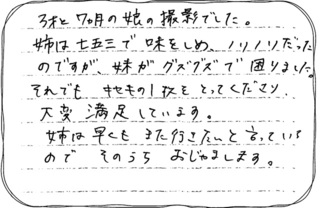 3才と7ヶ月の娘の撮影でした。
姉は七五三で味をしめ、ノリノリだった
のですが、妹がグズグズで困りました。
それでも奇セキの1枚をとってくださり、
大変満足しています。
姉は早くもまた行きたいと言っている
のでそのうちおじゃまします。